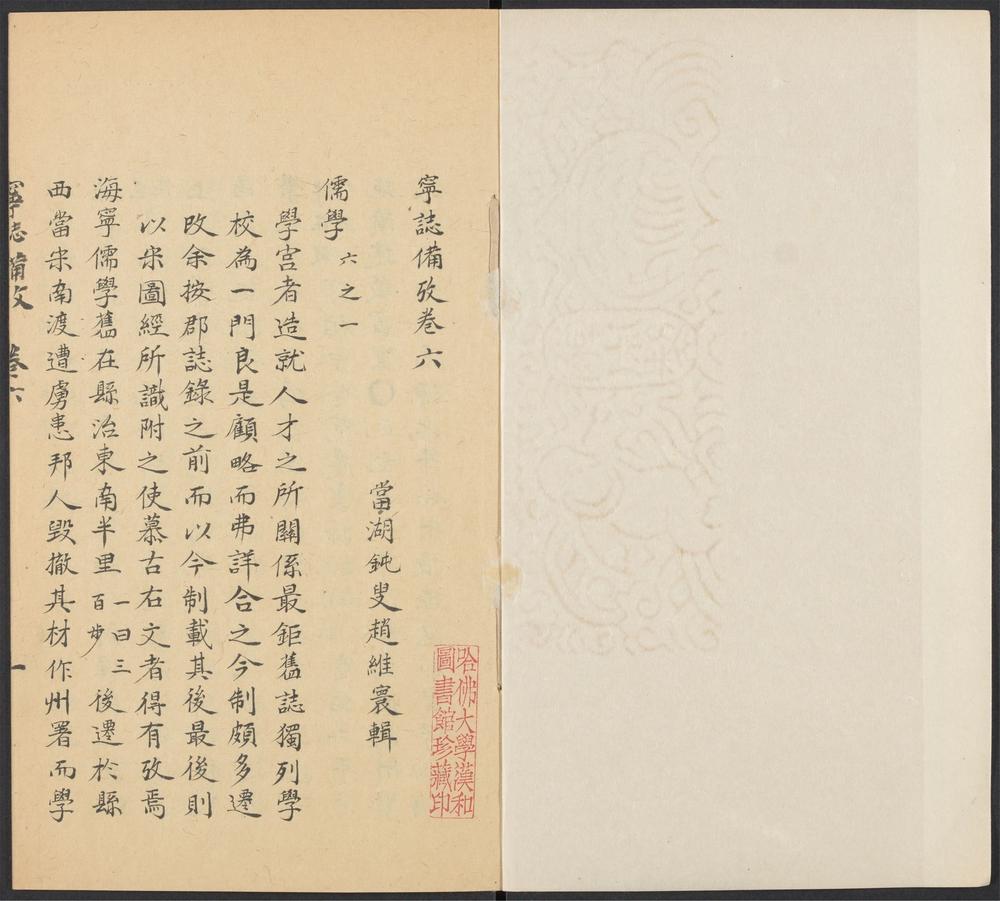 寧誌備攷卷六
當湖鈍叟趙維寰輯
儒學 六之一
學宮者造就人才之所關係最鉅舊誌獨列學
校為一門良是顧略而弗詳合之今制頗多遷
改余按郡誌錄之前而以今制載其後最後則
以宋圖經所識附之使慕古右文者得有攷焉
海寧儒學舊在縣治東南半里一曰三百步後遷於縣
西當宋南渡遭虜患邦人毀撤其材作州署而學
寧誌備攷 卷六 一
哈佛大學漢和
圖書館珍藏印